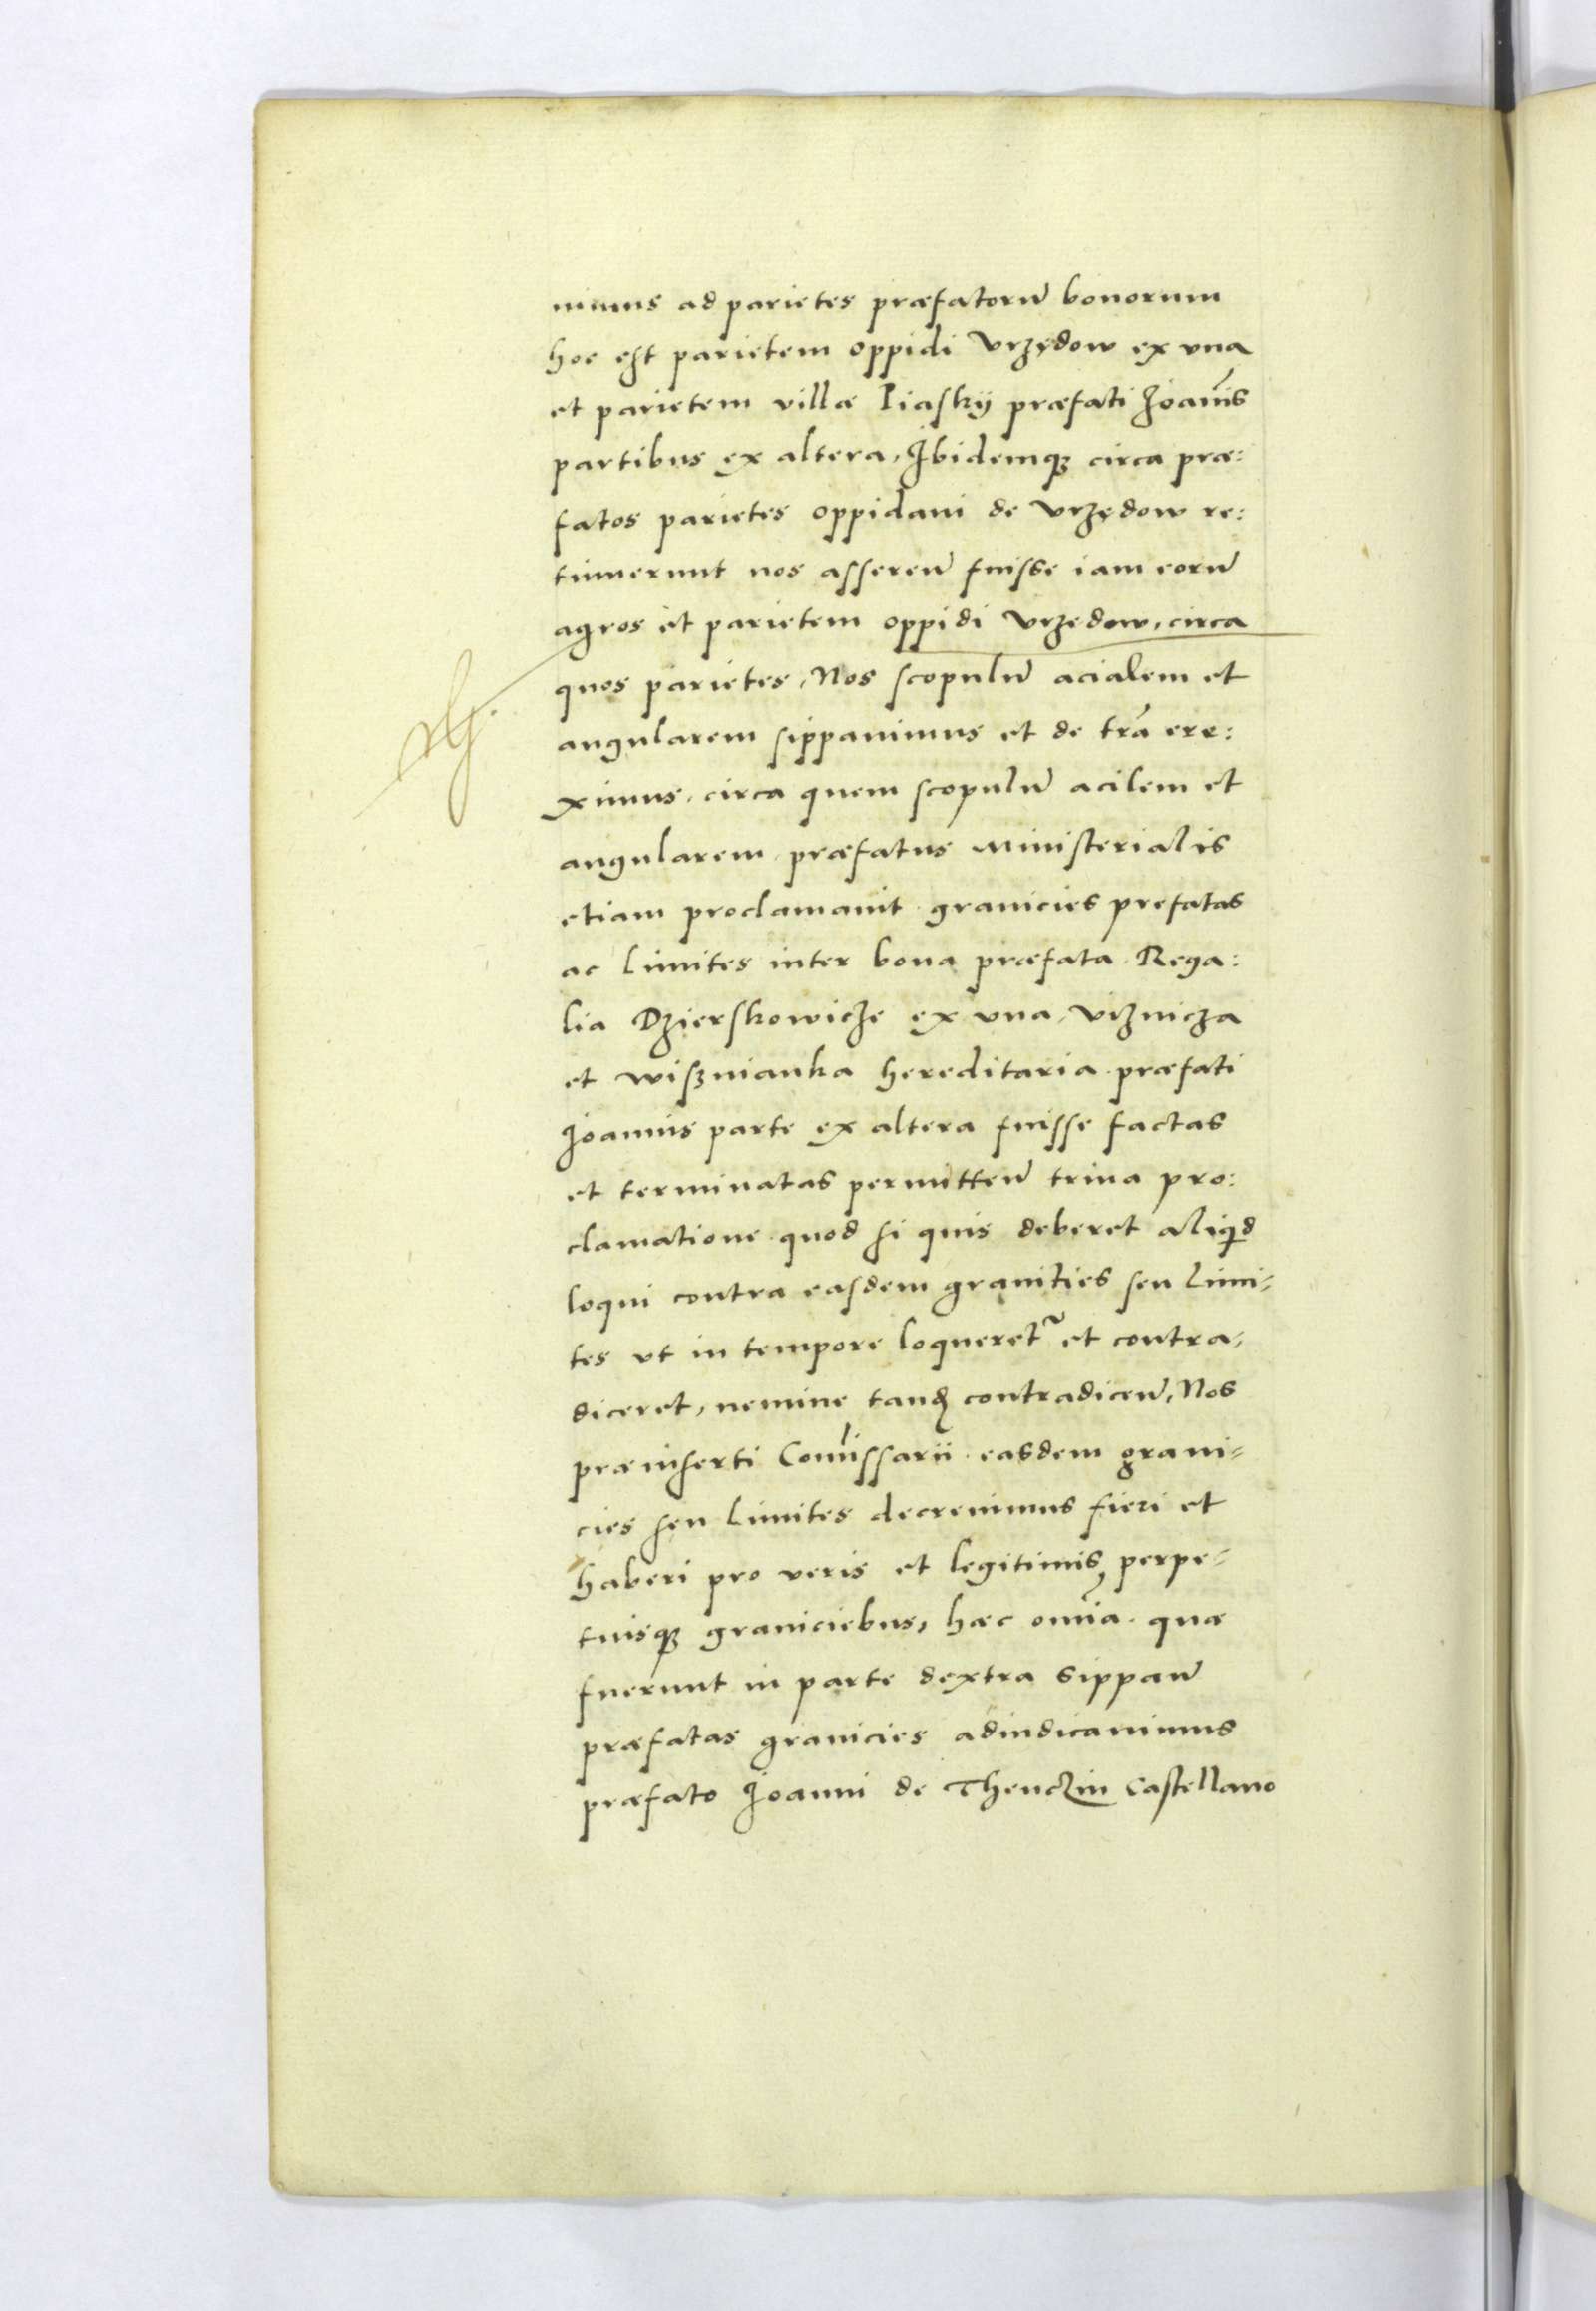 nimus ad parietes præfatorũ bonorum
hoc est parietem oppidi Vrzędow ex vna
et parietem villæ Piasky præfati Joañis
partibus ex altera, Ibidemq; circa præ:
fatos parietes oppidani de Vrzędow re:
tinuerunt nos asserenũ fuisse iam eorũ
agros et parietem oppidi Vrzedow, circa
quos parietes, Nos scopulũ acialem et
angularem sippavimus et de trã ere:
ximus, circa quem scopulũ acilem et
angularem præfatus Ministerialis
etiam proclamavit granicies prefatas
ac limites inter bona præfata Rega:
lia Dzierskowicze ex vna, Vrznicza
et Wisznianka hereditaria præfati
Joannis parte ex altera fuisse factas
et terminatas permittenũ trina pro:
clamatione quod si quis deberet aliqid
loqui contra easdem granities seu limi-
tes vt in tempore loqueretr et contra-
diceret, nemine tanq contradicenũ, Nos
præinserti Comissarii easdem grani-
cies seu limites decrevimus fieri et
haberi pro veris et legitimis, perpe-
tuisq; graniciebus, hæc omia quæ
fuerunt in parte dextra sippanũ
præfatas granicies adiudicavimus
præfato Joanni de Thenczin Castellano